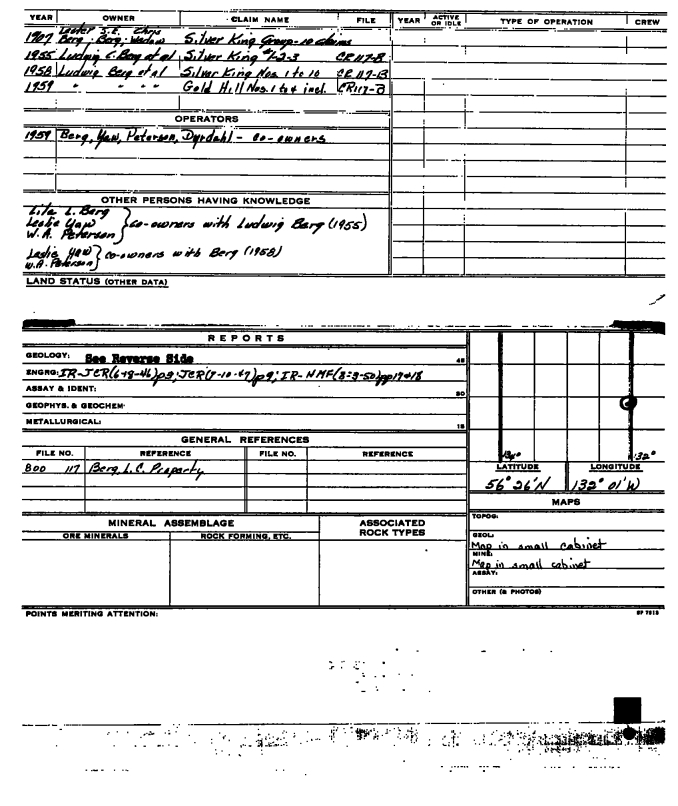 YEAR OWNER CLAIM NAME FILE YEAR ACTIVE OR IDLE TYPE OF OPERATION CREW
Chris
1907 Berg, Berg, Silver King Group-10 claims
1955 Ludwig C. Berg et al Silver King #1-2-3 CR 117-B
1958 Ludwig Berg et al Silver King Nos. 1 to 10 CR 117-B
1959 " " " " Gold Hill Nos. 1 to 4 incl. CR117-B
OPERATORS
1959 Berg, Yaw, Peterson, Dyrdahl - co-owners
OTHER PERSONS HAVING KNOWLEDGE
L. Berg
Leslie Yaw } co-owners with Ludwig Berg (1955)
W.A. Peterson
Leslie Yaw } co-owners with Berg (1958)
W.A. Peterson
LAND STATUS (OTHER DATA)
REPORTS
GEOLOGY: See Reverse Side 45
ENGRG: IR-JER(6-18-46)p9; JER(7-10-47)p9; IR-NMF(3-3-50)pp17&18
ASSAY & IDENT: 30
GEOPHYS. & GEOCHEM.
METALLURGICAL: 15
GENERAL REFERENCES
FILE NO. REFERENCE FILE NO. REFERENCE
800 117 Berg, L.C. Property
134° 132°
LATITUDE LONGITUDE
56° 26'N 132° 01'W
MAPS
TOPOG:
GEOL:
Map in small cabinet
MINE:
Map in small cabinet
ASSAY:
OTHER (& PHOTOS)
MINERAL ASSEMBLAGE ASSOCIATED ROCK TYPES
ORE MINERALS ROCK FORMING, ETC.
POINTS MERITING ATTENTION: